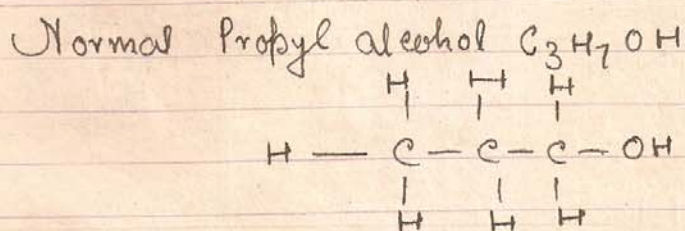 Normal Propyl alcohol C₃H₇OH
H H H
H — C — C — C — OH
H H H